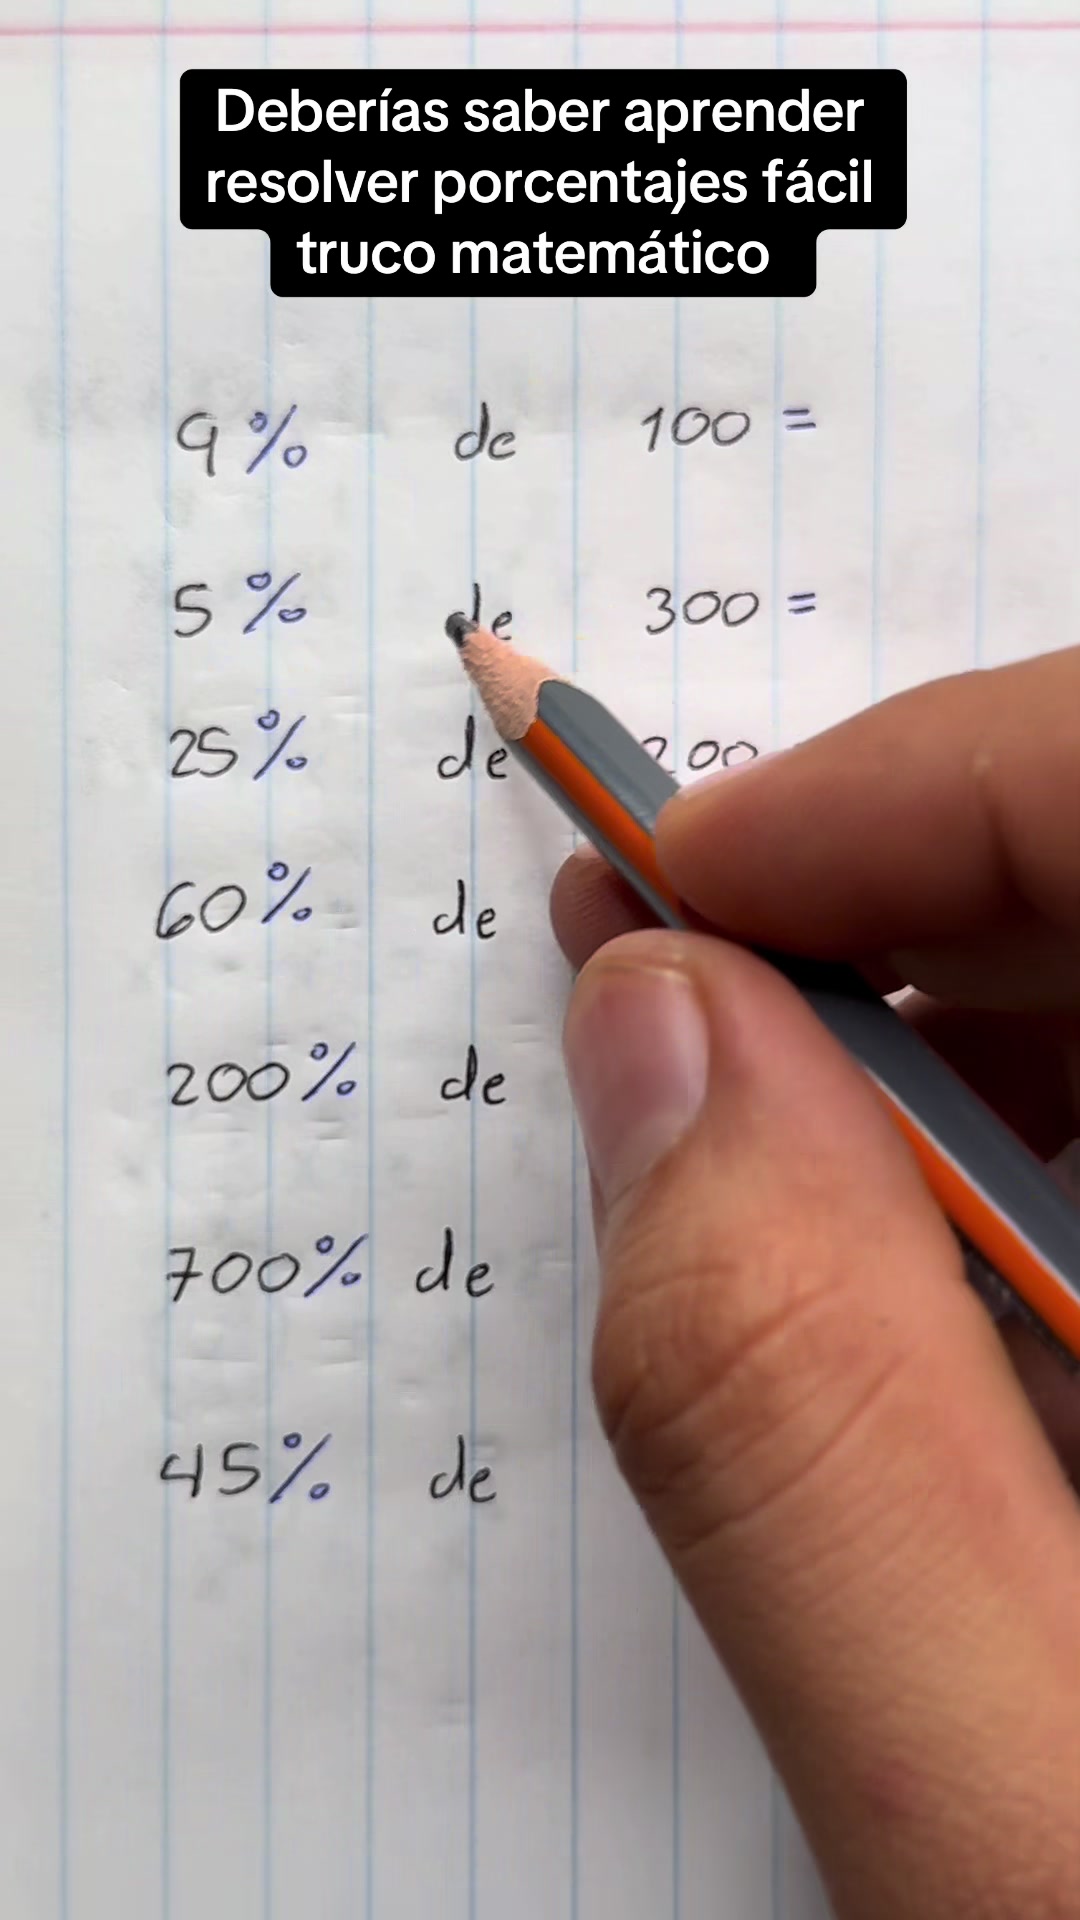 Deberías saber aprender
resolver porcentajes fácil
truco matemático
9% de 100 =
5% de 300 =
25% de 200
60% de
200% de
700% de
45% de